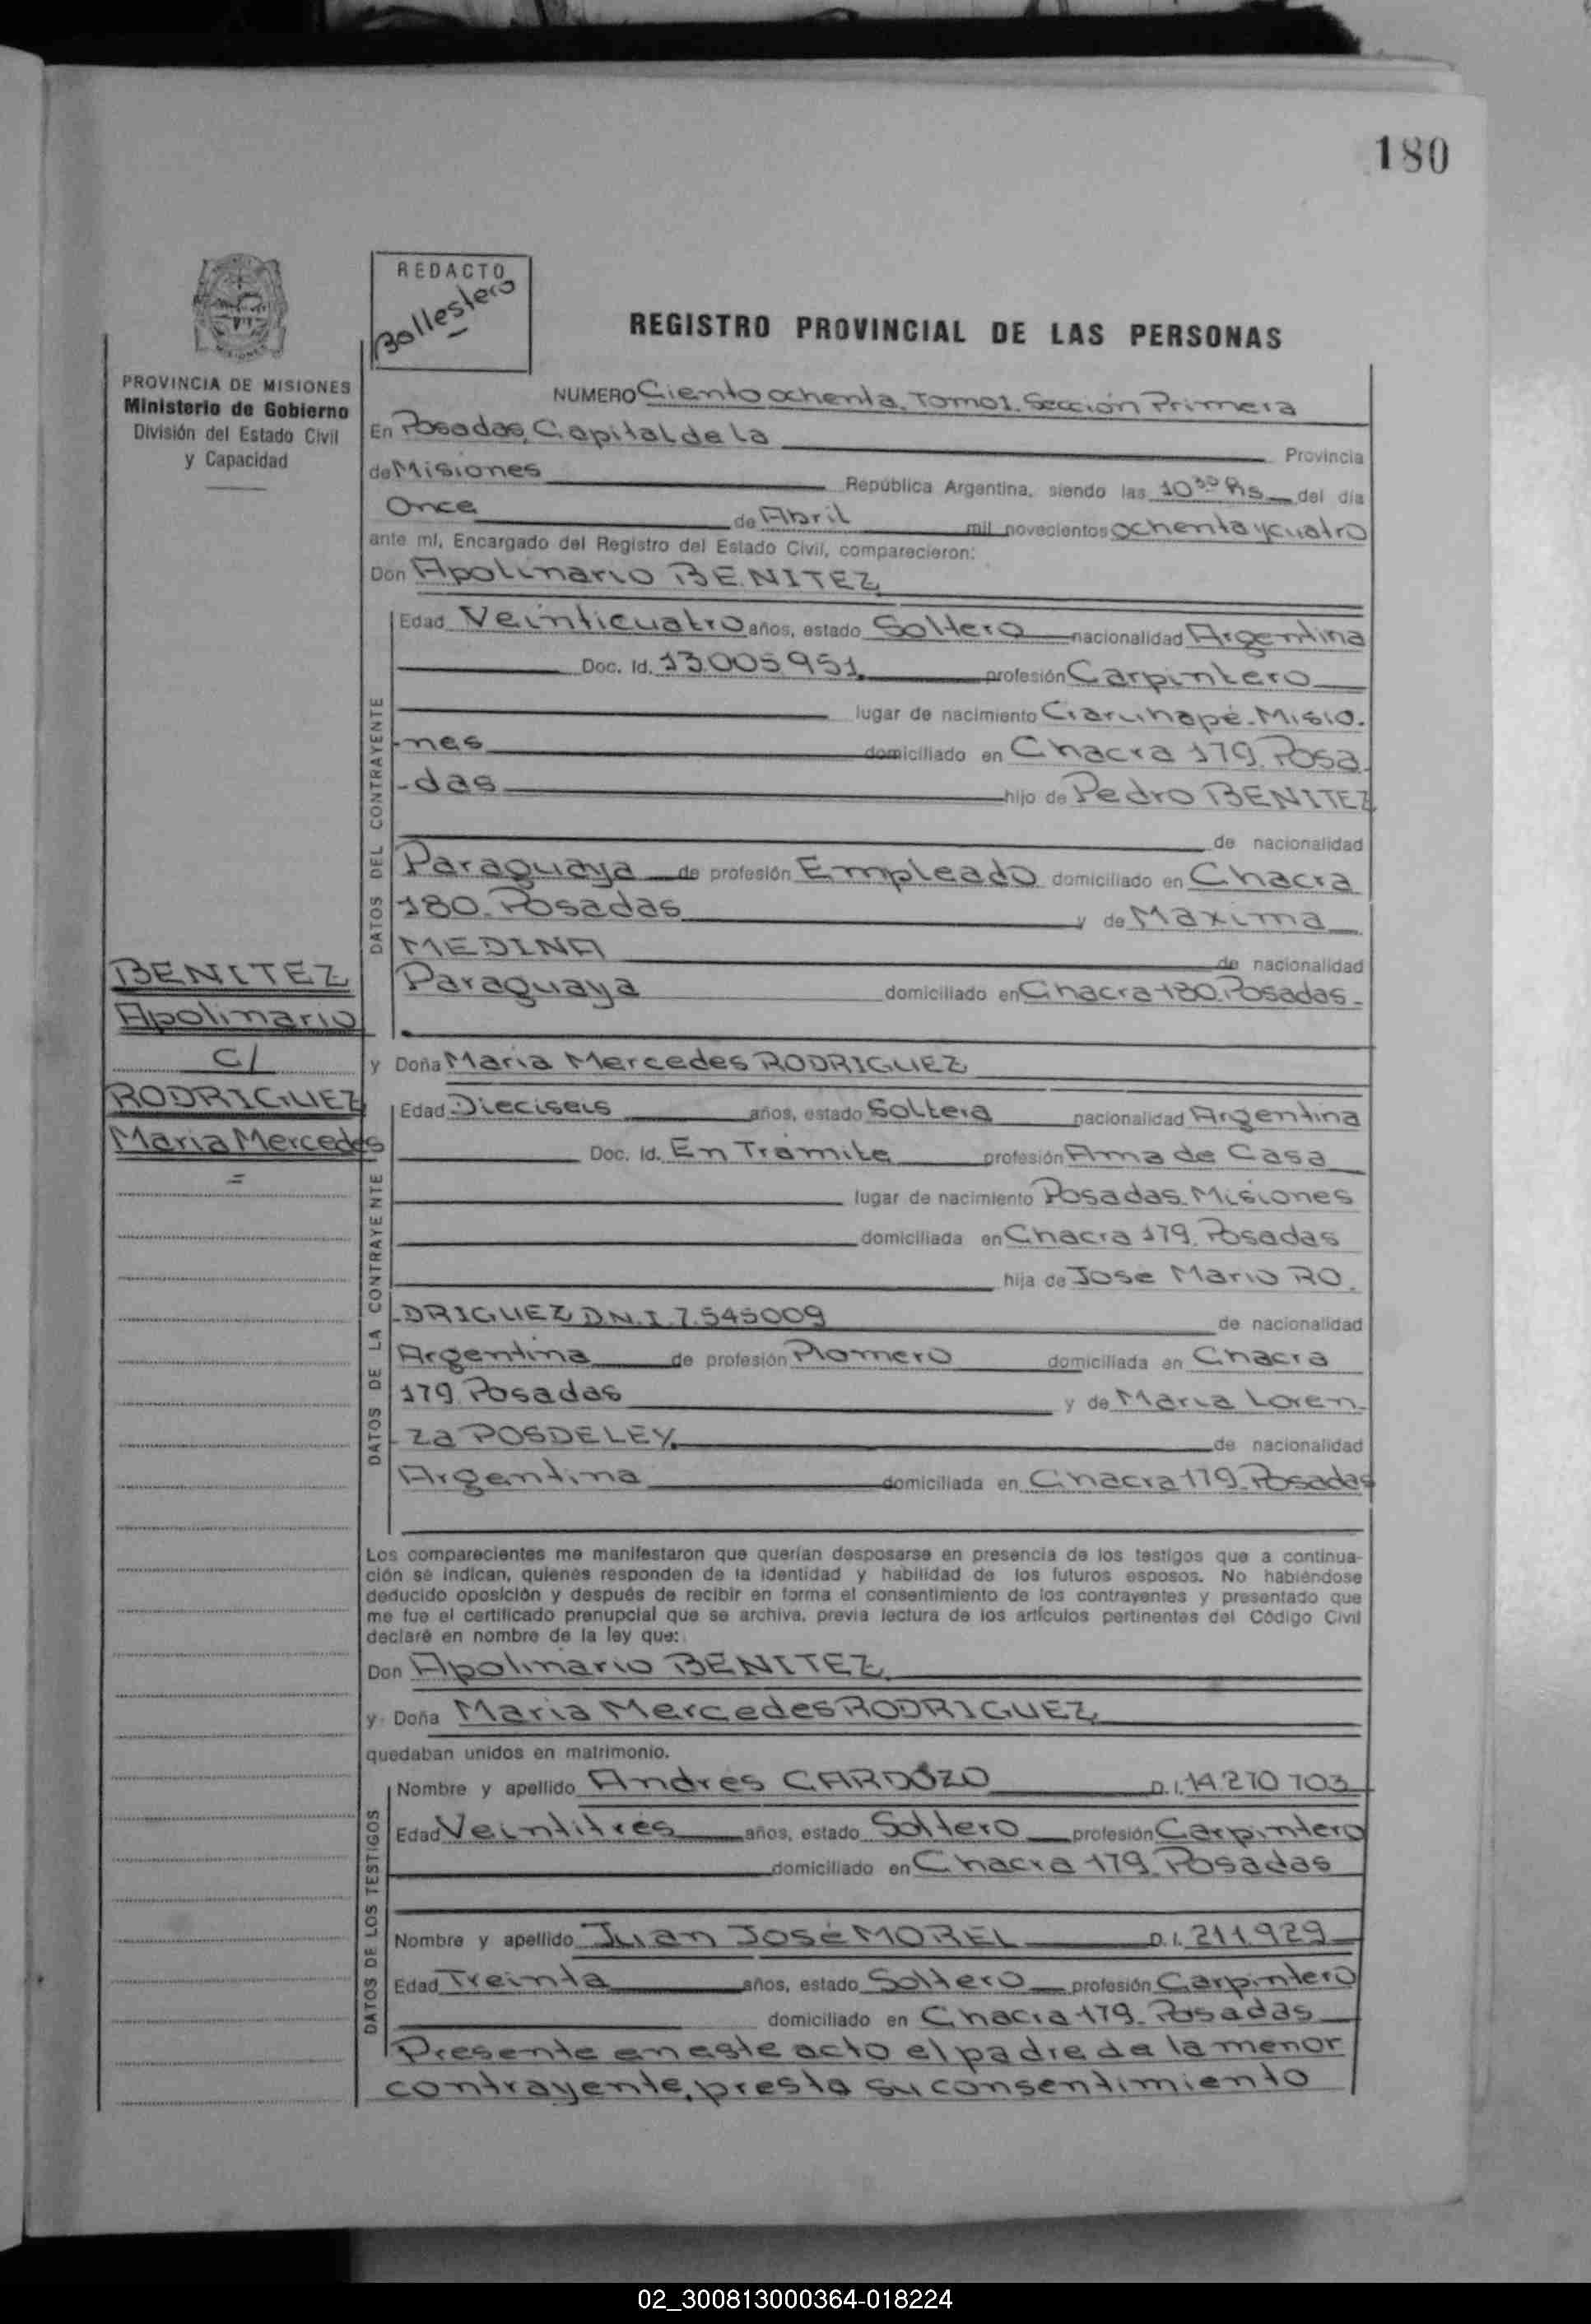 180
REDACTO
Ballestero
REGISTRO PROVINCIAL DE LAS PERSONAS
PROVINCIA DE MISIONES
Ministerio de Gobierno
División del Estado Civil
y Capacidad
NUMERO Ciento ochenta. Tomo 1. Sección Primera
En Posadas, Capital de La Provincia
de Misiones República Argentina, siendo las 10³⁰ Hs del día
Once de Abril mil novecientos ochenta y cuatro
ante mí, Encargado del Registro del Estado Civil, comparecieron:
Don Apolinario BENITEZ
DATOS DEL CONTRAYENTE
Edad Veinticuatro años, estado Soltero nacionalidad Argentina
Doc. Id. 13.005.951 profesión Carpintero
lugar de nacimiento Garuhapé-Misio-
-nes domiciliado en Chacra 179. Posa
-das hijo de Pedro BENITEZ
de nacionalidad
Paraguaya de profesión Empleado domiciliado en Chacra
180. Posadas y de Maxima
MEDINA de nacionalidad
Paraguaya domiciliado en Chacra 180. Posadas-
BENITEZ
Apolinario
c/
RODRIGUEZ
Maria Mercedes
=
y Doña Maria Mercedes RODRIGUEZ
DATOS DE LA CONTRAYENTE
Edad Dieciseis años, estado Soltera nacionalidad Argentina
Doc. Id. En Tramite profesión Ama de Casa
lugar de nacimiento Posadas. Misiones
domiciliada en Chacra 179. Posadas
hija de Jose Mario RO.
-DRIGUEZ D.N.I 7.545009 de nacionalidad
Argentina de profesión Plomero domiciliada en Chacra
179. Posadas y de Maria Loren-
- za POSDELEY. de nacionalidad
Argentina domiciliada en Chacra 179-Posadas
Los comparecientes me manifestaron que querían desposarse en presencia de los testigos que a continua-
ción se indican, quienes responden de la identidad y habilidad de los futuros esposos. No habiéndose
deducido oposición y después de recibir en forma el consentimiento de los contrayentes y presentado que
me fue el certificado prenupcial que se archiva, previa lectura de los artículos pertinentes del Código Civil
declaré en nombre de la ley que:
Don Apolinario BENITEZ
y Doña Maria Mercedes RODRIGUEZ
quedaban unidos en matrimonio.
DATOS DE LOS TESTIGOS
Nombre y apellido Andrés CARDOZO D.I. 14.270 703
Edad Veintitres años, estado Soltero profesión Carpintero
domiciliado en Chacra 179. Posadas
Nombre y apellido Juan José MOREL D.I. 211.929
Edad Treinta años, estado Soltero profesión Carpintero
domiciliado en Chacra 179- Posadas
Presente en este acto el padre de la menor
contrayente, presta su consentimiento
02_300813000364-018224